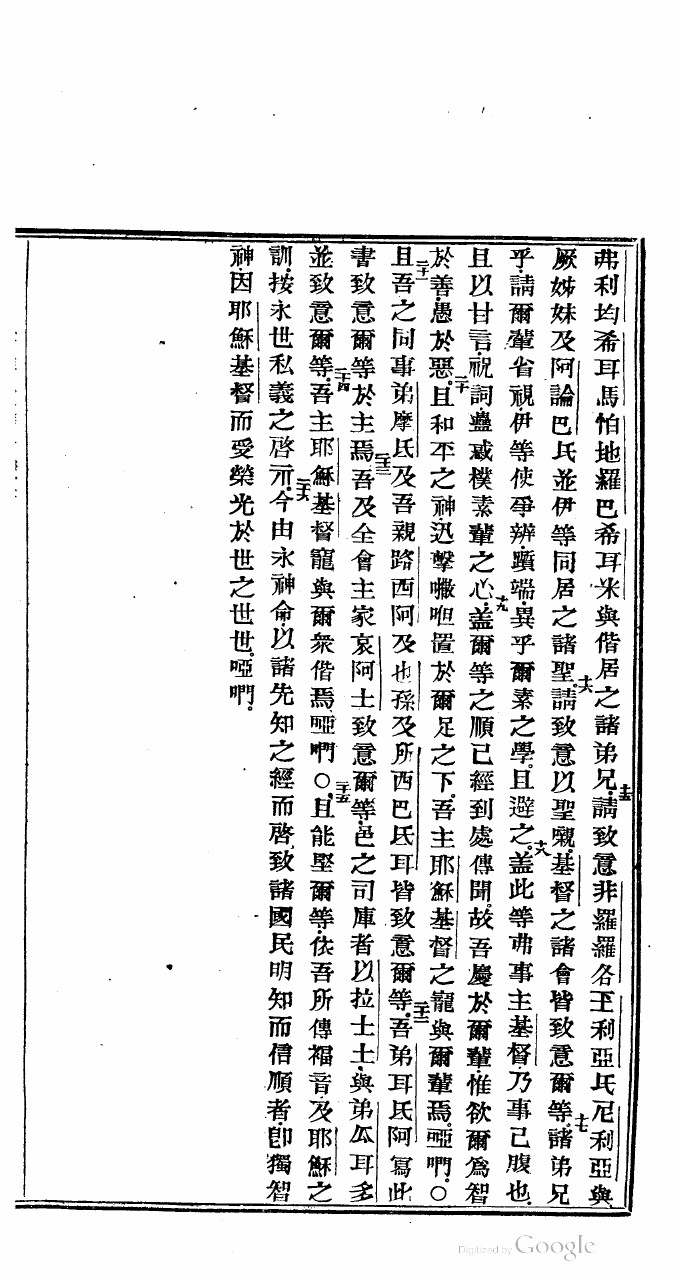 弗利均希耳馬怕地羅巴希耳米與偕居之諸弟兄十五請致意非羅羅各王利亞氏尼利亞與
厥姊妹及阿論巴氏並伊等同居之諸聖十六請致意以聖嚫基督之諸會皆致意爾等十七諸弟兄
乎請爾輩省視伊等使爭辨躓端異乎爾素之學且避之十八盖此等弗事主基督乃事己腹也
且以甘言祝詞蠱惑樸素輩之心十九盖爾等之順已經到處傳聞故吾慶於爾輩惟欲爾為智
於善愚於惡二十且和平之神迅擊撒咀置於爾足之下吾主耶穌基督之寵與爾輩焉啞們〇
二十一且吾之同事弟摩氏及吾親路西阿及也孫及所西巴氐耳皆致意爾等二十二吾弟耳氏阿寫此
書致意爾等於主焉二十三吾及全會主家哀阿士致意爾等邑之司庫者以拉士土與弟瓜耳多
並致意爾等二十四吾主耶穌基督寵與爾衆偕焉啞們〇二十五且能堅爾等依吾所傳福音及耶穌之
訓按永世私義之啓示二十六今由永神命以諸先知之經而啓致諸國民明知而信順者即獨智
神因耶穌基督而受榮光於世之世世啞們
Digitized by Google